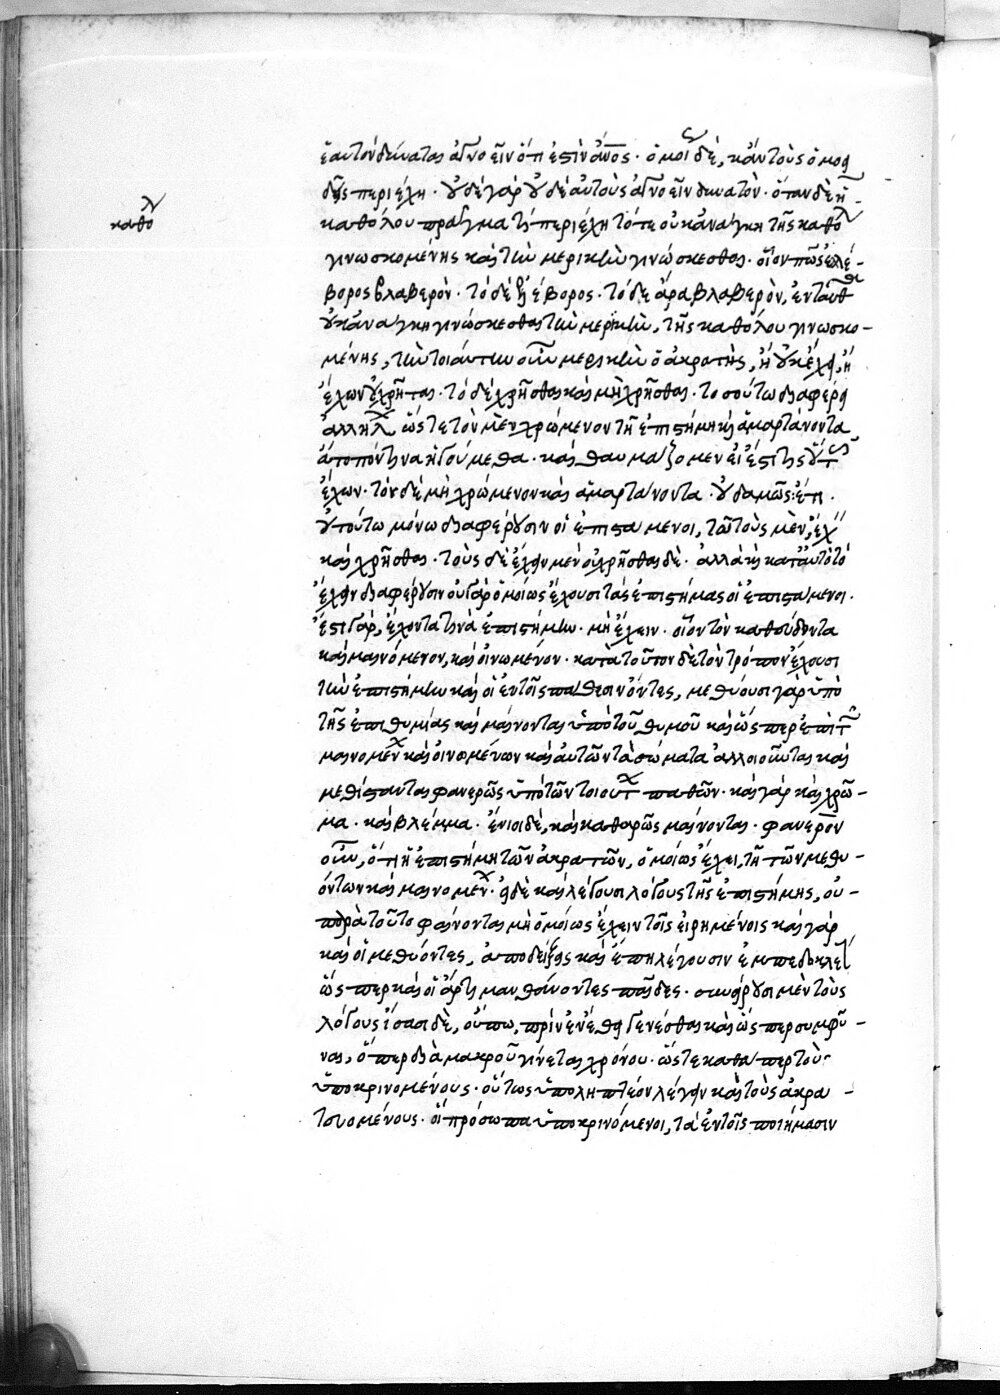 ἑαυτὸν δύναται ἀγνοεῖν ὅτι ἐστὶν ἄνος. ὁμοίως δὲ, κἂν τοὺς ὁμοει
δεῖς περιέχη. οὐδὲ γὰρ οὐδὲ αὐτοὺς ἀγνοεῖν δυνατὸν. ὅταν δὲ ἡ
καθόλου πρᾶγμα τὶ περιέχη τότε οὐκ ἀνάγκη τῆς καθόλ
καθόλ
γινωσκομένης καὶ τὴν μερικὴν γινώσκεσθαι. οἷον πῶς ἐλέ-
βορος βλαβερὸν. τὸ δὲ ἐλέβορος. τὸ δὲ ἄρα βλαβερὸν, ἐνταῦθα
οὐκ ἀνάγκη γινώσκεσθαι τὴν μερικὴν, τῆς καθόλου γινωσκο-
μένης, τὴν τοιαύτην οὖν μερικὴν ὁ ἀκρατὴς, ἢ οὐκ ἔχει, ἢ
ἔχων οὐ χρῆται. τὸ δὲ χρῆσθαι καὶ μὴ χρῆσθαι. τοσούτω διαφέρει
ἀλλήλων ὥστε τὸν μὲν χρώμενον τῇ ἐπιστήμη καὶ ἁμαρτάνοντα
ἄτοπόν τινα ἡγούμεθα. καὶ θαυμάζομεν εἰ ἔστι τις οὕτως
ἔχων. τὸν δὲ μὴ χρώμενον καὶ ἁμαρτάνοντα. οὐδαμῶς: ἔτι.
οὐ τούτω μόνω διαφέρουσιν οἱ ἐπιστάμενοι, τῶ τοὺς μὲν, ἔχειν
καὶ χρῆσθαι. τοὺς δὲ ἔχειν μὲν οὐ χρῆσθαι δὲ. ἀλλὰ καὶ κατ' αὐτὸ τὸ
ἔχειν διαφέρουσιν οὐ γὰρ ὁμοίως ἔχουσι τὰς ἐπιστήμας οἱ ἐπιστάμενοι.
ἔστι γὰρ, ἔχοντα τινὰ ἐπιστήμην. μὴ ἔχειν. οἷον τὸν καθεύδοντα
καὶ μαινόμενον, καὶ οἰνωμένον. κατὰ τοῦτον δὲ τὸν τρόπον ἔχουσι
τὴν ἐπιστήμην καὶ οἱ ἐν τοῖς πάθεσιν ὄντες, μεθύουσι γὰρ ὑπὸ
τῆς ἐπιθυμίας καὶ μαίνονται ὑπὸ τοῦ θυμοῦ καὶ ὥσπερ ἐπὶ τῶν
μαινομένων καὶ οἰνωμένων καὶ αὐτῶν τὰ σώματα ἀλλοιοῦνται καὶ
μεθίστανται φανερῶς ὑπὸ τῶν τοιούτων παθῶν. καὶ γὰρ καὶ χρῶ-
μα. καὶ βλέμμα. ἔνιοι δὲ, καὶ καθαρῶς μαίνονται. φανερὸν
οὖν, ὅτι ἡ ἐπιστήμη τῶν ἀκρατῶν, ὁμοίως ἔχει, τῇ τῶν μεθυ-
όντων καὶ μαινομένων. εἰ δὲ καὶ λέγουσι λόγους τῆς ἐπιστήμης, οὐ-
παρὰ τοῦτο φαίνονται μὴ ὁμοίως ἔχειν τοῖς εἰρημένοις καὶ γὰρ
καὶ οἱ μεθύοντες, ἀποδείξεις καὶ ἔπη λέγουσιν ἐμπεδοκλέους
ὥσπερ καὶ οἱ ἄρτι μανθάνοντες παῖδες. συνείρουσι μὲν τοὺς
λόγους ἴσασι δὲ, οὔπω, πρὶν ἐν ἔθει γενέσθαι καὶ ὥσπερ συμφῦ-
ναι, ὅπερ διὰ μακροῦ γίνεται χρόνου. ὥστε καθάπερ τοὺς
ὑποκρινομένους. οὕτως ὑποληπτέον λέγειν καὶ τοὺς ἀκρα-
τευομένους. οἱ πρόσωπα ὑποκρινόμενοι, τὰ ἐν τοῖς ποιήμασιν